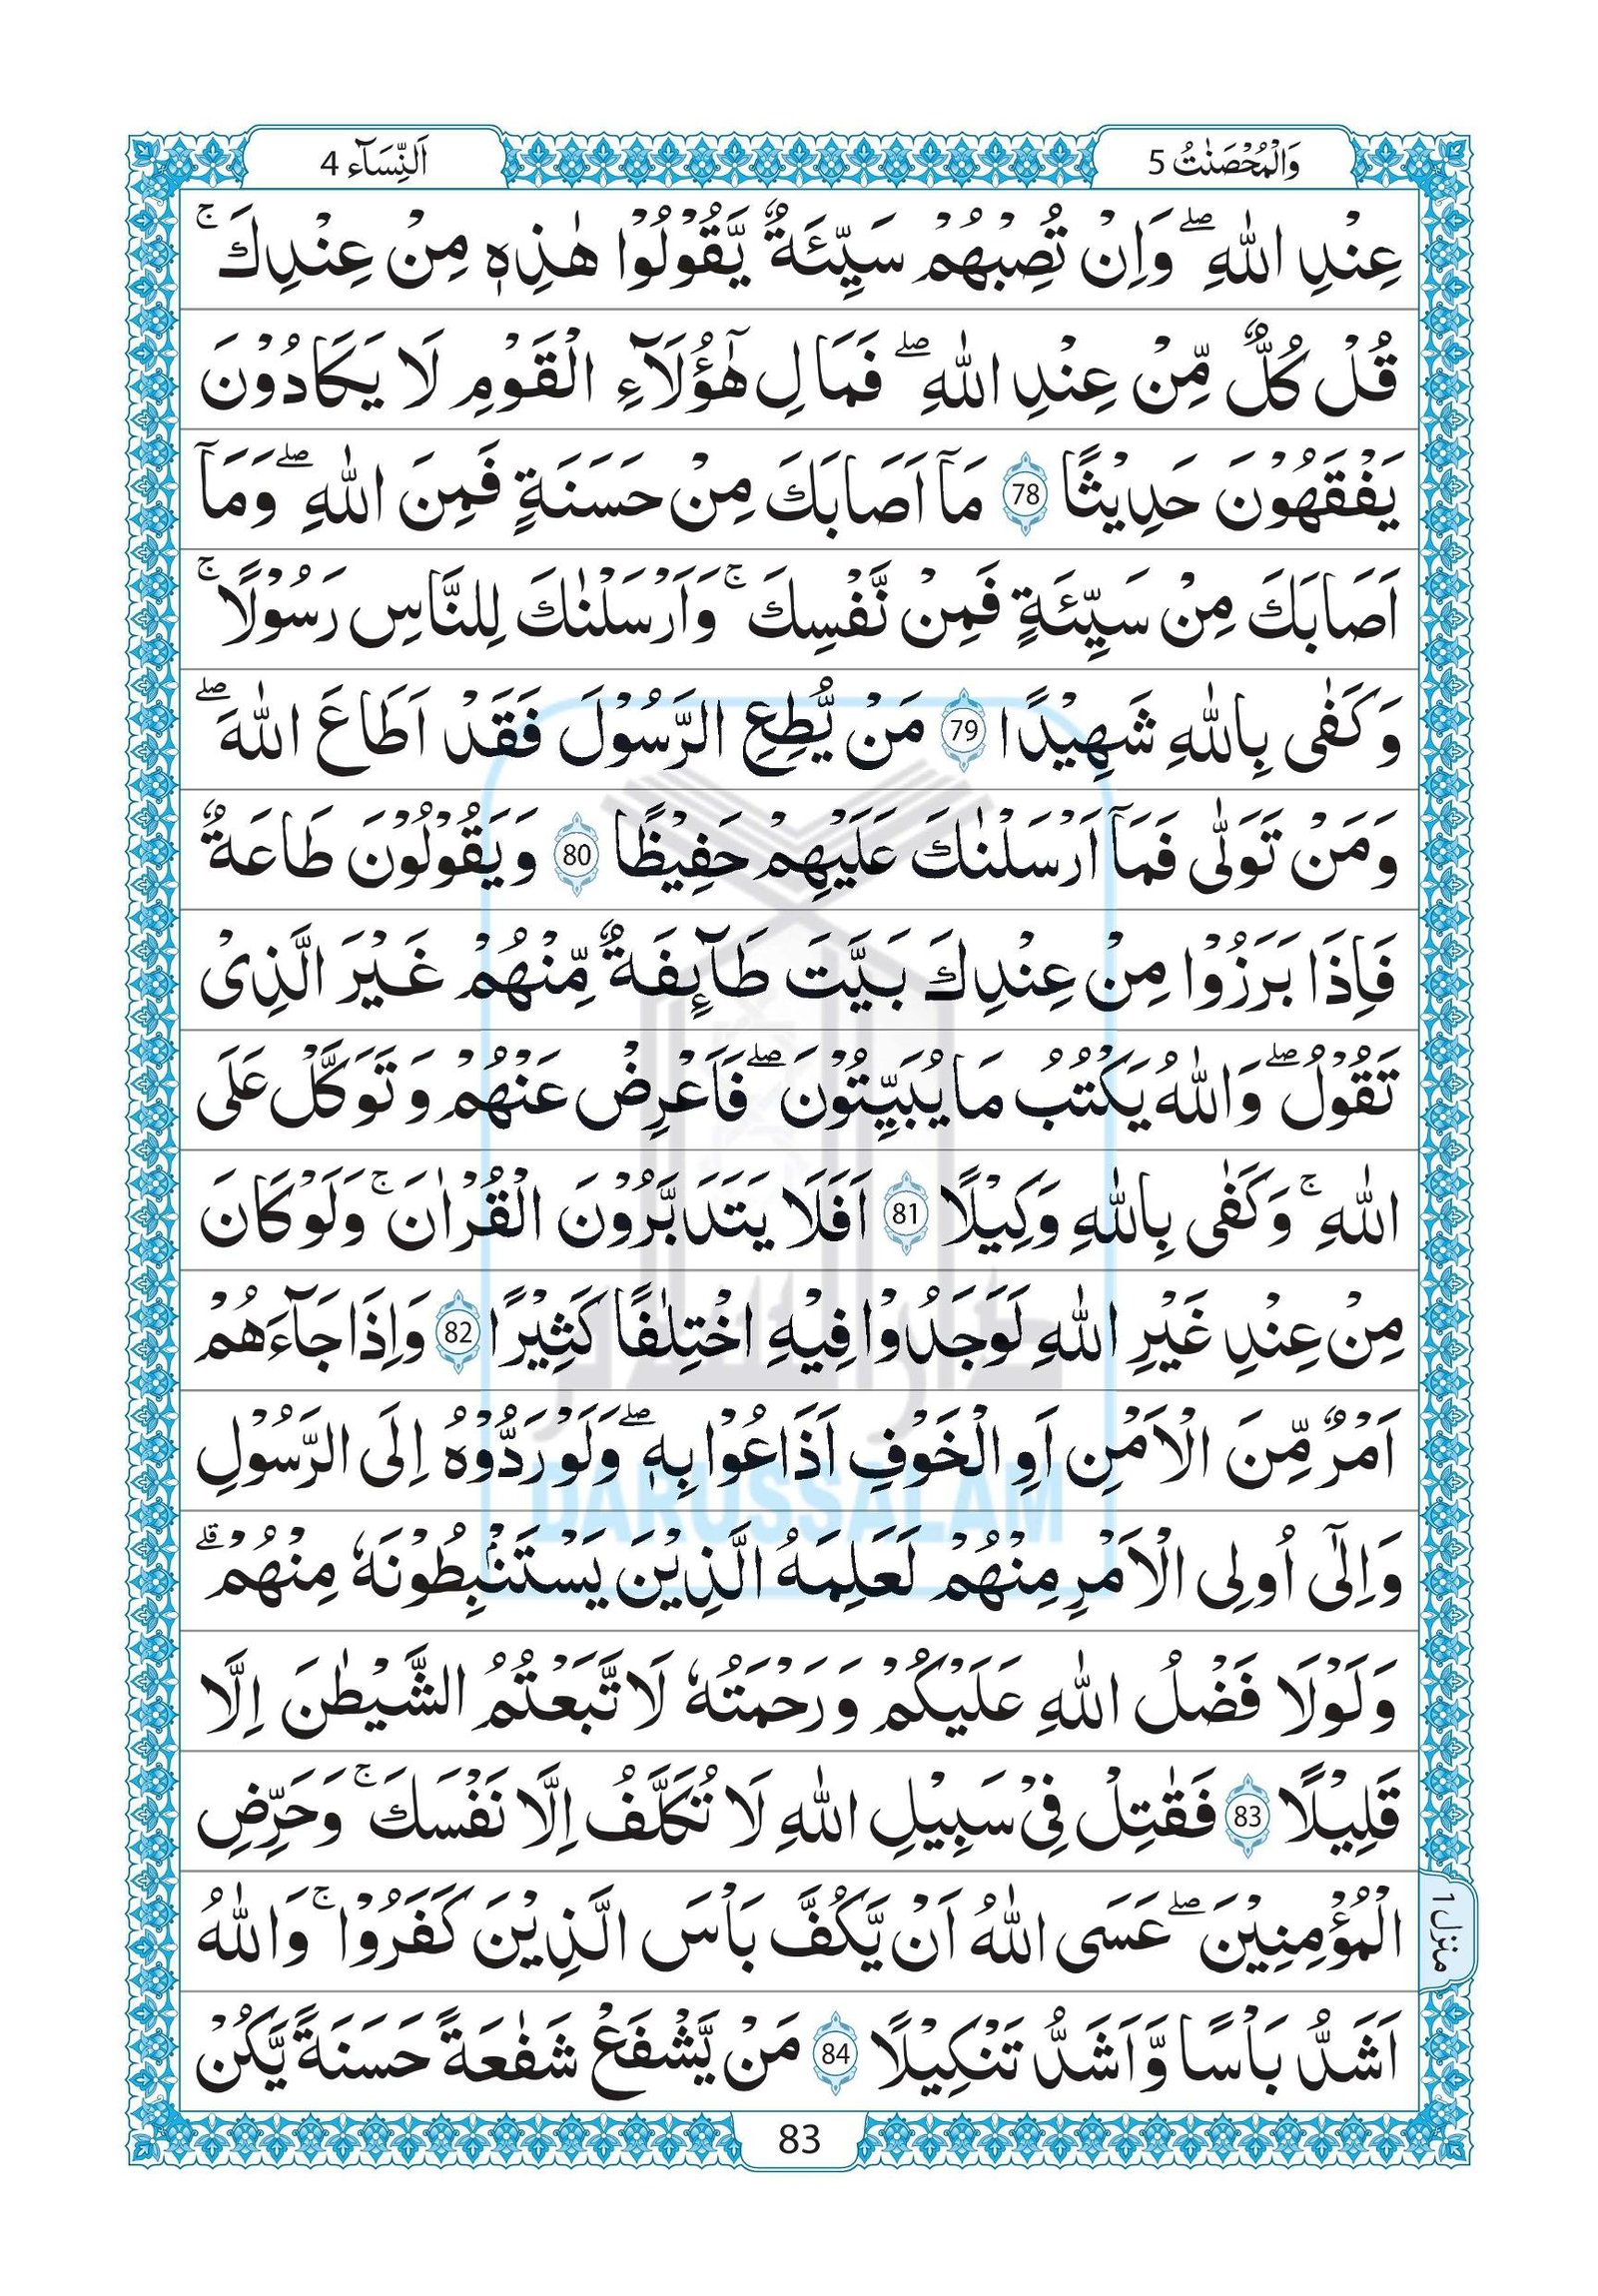 وَالْمُحْصَنٰتُ 5
اَلنِّسَآء 4
عِنْدِ اللّٰهِ ۖ وَاِنْ تُصِبْهُمْ سَيِّئَةٌ يَّقُوْلُوْا هٰذِهٖ مِنْ عِنْدِكَ ۚ
قُلْ كُلٌّ مِّنْ عِنْدِ اللّٰهِ ۖ فَمَالِ هٰٓؤُلَآءِ الْقَوْمِ لَا يَكَادُوْنَ
يَفْقَهُوْنَ حَدِيْثًا 78 مَآ اَصَابَكَ مِنْ حَسَنَةٍ فَمِنَ اللّٰهِ ۖ وَمَآ
اَصَابَكَ مِنْ سَيِّئَةٍ فَمِنْ نَّفْسِكَ ۚ وَاَرْسَلْنٰكَ لِلنَّاسِ رَسُوْلًا ۚ
وَكَفٰى بِاللّٰهِ شَهِيْدًا 79 مَنْ يُّطِعِ الرَّسُوْلَ فَقَدْ اَطَاعَ اللّٰهَ ۖ
وَمَنْ تَوَلّٰى فَمَآ اَرْسَلْنٰكَ عَلَيْهِمْ حَفِيْظًا 80 وَيَقُوْلُوْنَ طَاعَةٌ
فَاِذَا بَرَزُوْا مِنْ عِنْدِكَ بَيَّتَ طَآئِفَةٌ مِّنْهُمْ غَيْرَ الَّذِىْ
تَقُوْلُ ۖ وَاللّٰهُ يَكْتُبُ مَا يُبَيِّتُوْنَ ۖ فَاَعْرِضْ عَنْهُمْ وَتَوَكَّلْ عَلَى
اللّٰهِ ۚ وَكَفٰى بِاللّٰهِ وَكِيْلًا 81 اَفَلَا يَتَدَبَّرُوْنَ الْقُرْاٰنَ ۚ وَلَوْ كَانَ
مِنْ عِنْدِ غَيْرِ اللّٰهِ لَوَجَدُوْا فِيْهِ اخْتِلٰفًا كَثِيْرًا 82 وَاِذَا جَآءَهُمْ
اَمْرٌ مِّنَ الْاَمْنِ اَوِ الْخَوْفِ اَذَاعُوْا بِهٖ ۖ وَلَوْ رَدُّوْهُ اِلَى الرَّسُوْلِ
وَاِلٰٓى اُولِى الْاَمْرِ مِنْهُمْ لَعَلِمَهُ الَّذِيْنَ يَسْتَنْۢبِطُوْنَهٗ مِنْهُمْ ۗ
وَلَوْلَا فَضْلُ اللّٰهِ عَلَيْكُمْ وَرَحْمَتُهٗ لَا تَّبَعْتُمُ الشَّيْطٰنَ اِلَّا
قَلِيْلًا 83 فَقٰتِلْ فِىْ سَبِيْلِ اللّٰهِ لَا تُكَلَّفُ اِلَّا نَفْسَكَ ۚ وَحَرِّضِ
الْمُؤْمِنِيْنَ ۖ عَسَى اللّٰهُ اَنْ يَّكُفَّ بَاْسَ الَّذِيْنَ كَفَرُوْا ۚ وَاللّٰهُ
منزل ۱
اَشَدُّ بَاْسًا وَّاَشَدُّ تَنْكِيْلًا 84 مَنْ يَّشْفَعْ شَفٰعَةً حَسَنَةً يَّكُنْ
83
دارالسلام
DARUSSALAM